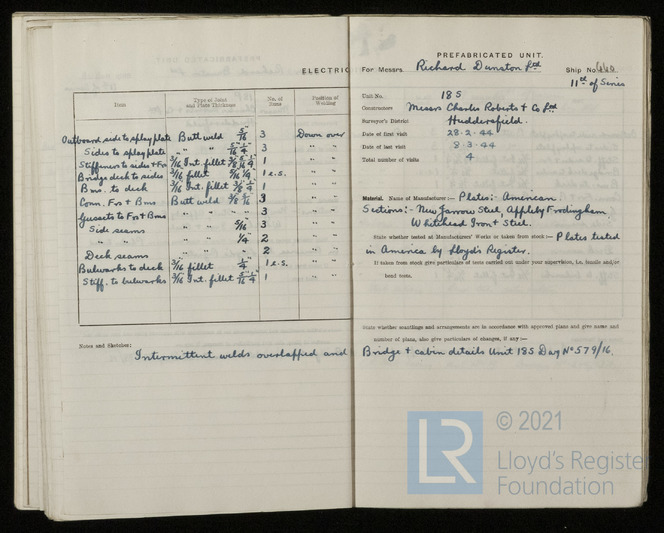 ELECTRIC
Item Type of Joint and Plate Thickness No. of Runs Position of Welding
Outboard side to splay plate Butt weld 5/16" 3 Down over
Sides to splay plate " " 5/16" 1/4" 3 " "
Stiffeners to sides + Frs 3/16 Int. fillet 3/8 5/16 1/4 1 " "
Bridge deck to sides 3/16 fillet 5/16 1/4" 1 e.s. " "
Bms. to deck 3/16 Int. fillet 3/8 1/4 1 " "
Conn. Frs + Bms Butt weld 3/8 5/16 3 " "
Gussets to Frs + Bms " " " " 3 " "
Side seams " " 5/16" 3 " "
" " " " 1/4" 2 " "
Deck seams " " " 2 " "
Bulwarks to deck 3/16 fillet 1/4" 1 e.s. " "
Stiff. to bulwarks 3/16 Int. fillet 5/16 1/4" 1 " "
Notes and Sketches:
Intermittent welds overlapped and
PREFABRICATED UNIT.
For Messrs. Richard Dunston Ltd Ship No.
11th of Series
Unit No. 185
Constructors Messrs Charles Roberts & Co Ltd
Surveyor's District Huddersfield.
Date of first visit 28-2-44
Date of last visit 8-3-44
Total number of visits 4
Material. Name of Manufacturer :— Plates:- American.
Sections:- New Jarrow Steel, Appleby Frodingham,
Whitehead Iron & Steel.
State whether tested at Manufacturers' Works or taken from stock :— Plates tested
in America by Lloyd's Register.
If taken from stock give particulars of tests carried out under your supervision, i.e. tensile and/or
bend tests.
State whether scantlings and arrangements are in accordance with approved plans and give name and
number of plans, also give particulars of changes, if any :—
Bridge & cabin details Unit 185 Drg No 579/16.
LR © 2021
Lloyd's Register
Foundation